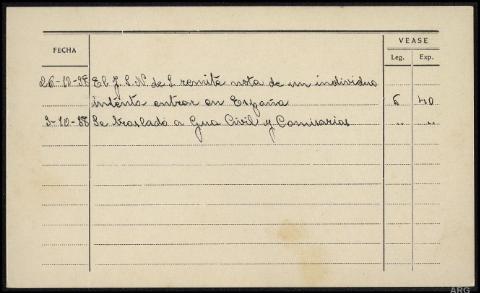 VEASE
FECHA
Leg. Exp.
26-12-38 El J. S. N. de S. remite nota de un individuo
intenta entrar en España 6 40
3-10-38 Se traslado a Gua Civil y Comisarias " "
ARG